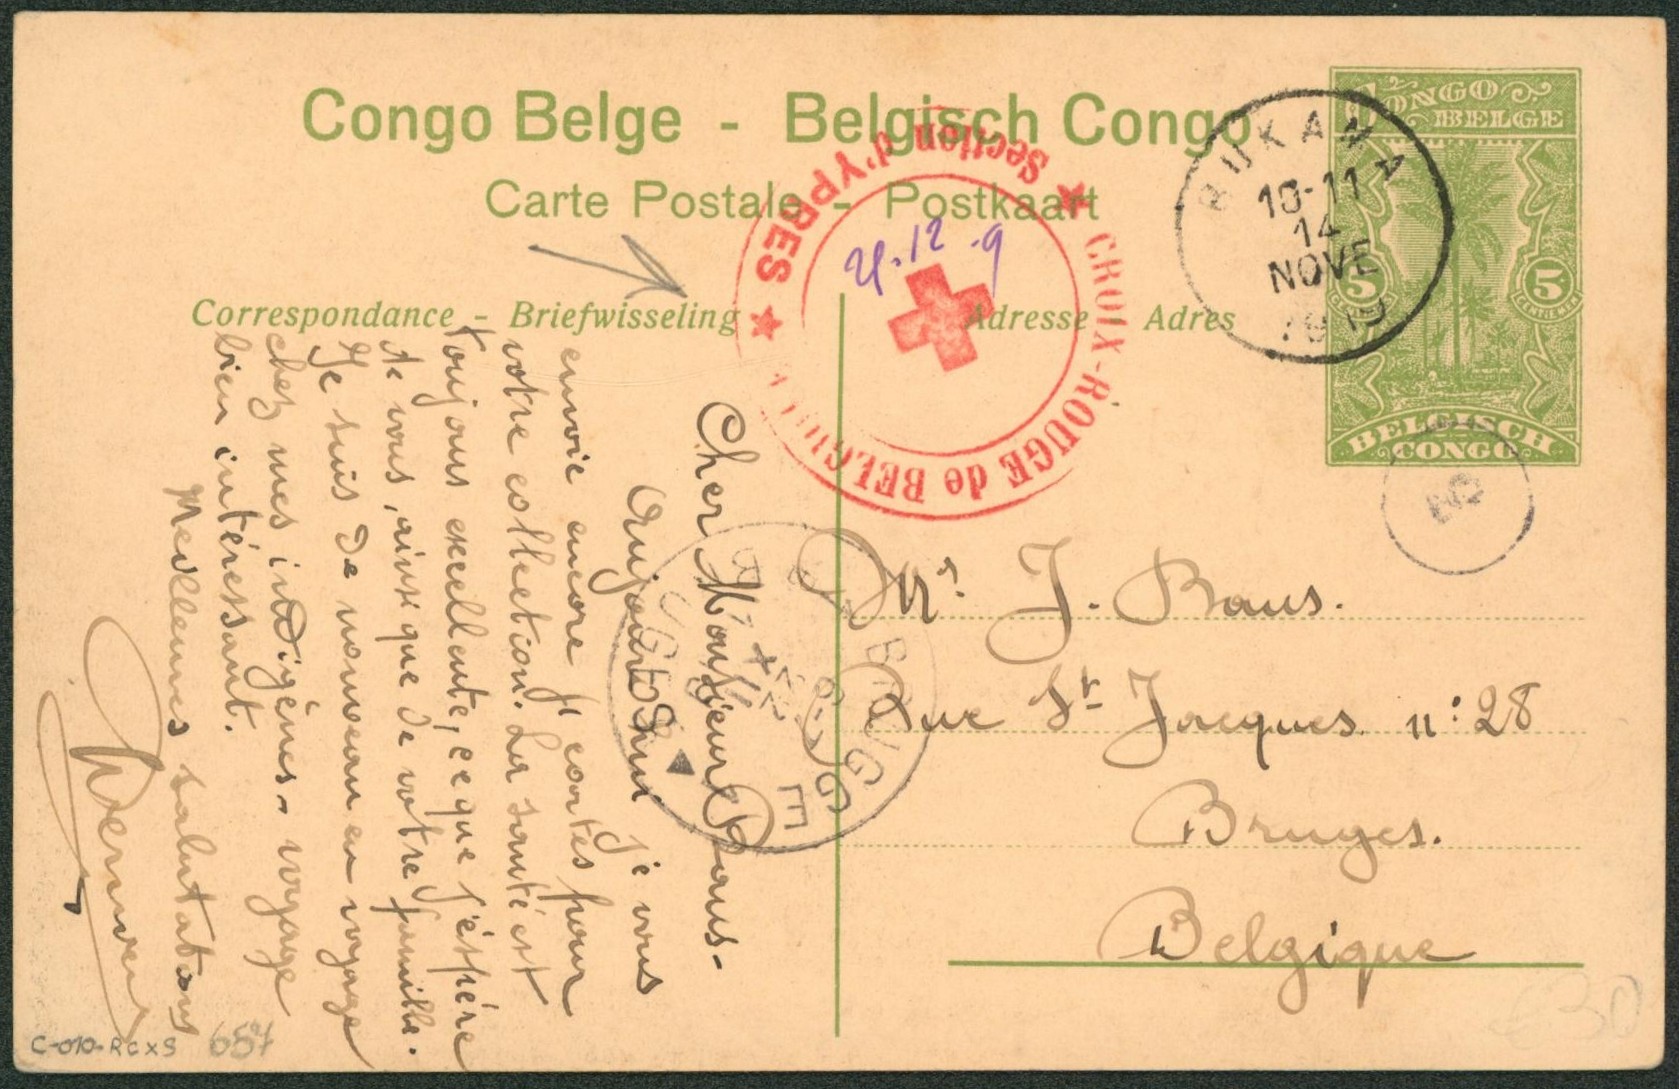 Congo Belge - Belgisch Congo
Carte Postale - Postkaart
Correspondance - Briefwisseling
Adresse - Adres
CONGO
BELGE
5 5
BELGISCH
CONGO
BUKAMA
10-11
14
NOVE
1919
★ CROIX-ROUGE de BELGIQUE ★
Section d'YPRES
21.12.9
BRUGGE
BRUGES
Mr. J. Baus.
Rue St Jacques no: 28
Bruges.
Belgique
Cher Monsieur Baus-
Aujourd'hui je vous
envoie encore 71 cartes pour
votre collection. La santé est
toujours excellente, ce que j'éspère
de vous, ainsi que de votre famille.
Je suis de nouveau en voyage
chez mes indigènes. voyage
bien intéressant.
Meilleures salutations
C-010-RCXS 657
€30